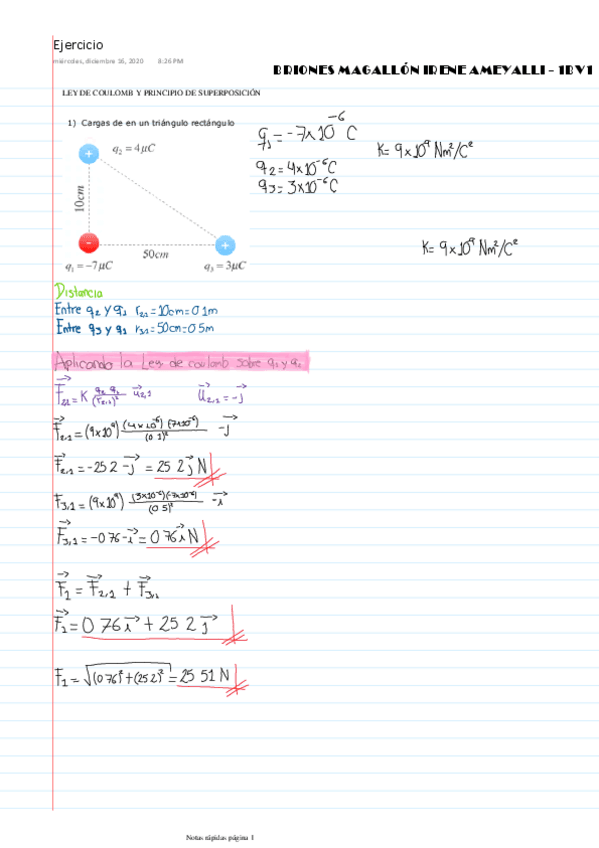 Ejercicio
miércoles, diciembre 16, 2020 8:26 PM
BRIONES MAGALLÓN IRENE AMEYALLI - 1BV1
LEY DE COULOMB Y PRINCIPIO DE SUPERPOSICIÓN
1) Cargas de en un triángulo rectángulo
q₁ = -7x10⁻⁶ C
K= 9x10⁹ Nm²/C²
+ q₂ = 4μC
q₂ = 4x10⁻⁶C
q₃ = 3x10⁻⁶C
10cm
K= 9x10⁹ Nm²/C²
- +
50cm
q₁ = -7μC q₃ = 3μC
Distancia
Entre q₂ y q₁ r₂₁ = 10cm = 0.1m
Entre q₃ y q₁ r₃₁ = 50cm = 0.5m
Aplicando la Ley de coulomb sobre q₁ y q₂
F₂₁ = K q₂ q₁ / (r₂,₁)² u₂,₁ u₂,₁ = -j
F₂,₁ = (9x10⁹) (4x10⁻⁶) (7x10⁻⁶) / (0.1)² -j
F₂,₁ = -25.2 -j = 25.2 j N
F₃,₁ = (9x10⁹) (3x10⁻⁶)(-7x10⁻⁶) / (0.5)² -i
F₃,₁ = -0.76 -i = 0.76 i N
F₁ = F₂,₁ + F₃,₁
F₁ = 0.76 i + 25.2 j
F₁ = √(0.76)² + (25.2)² = 25.51 N
Notas rápidas página 1